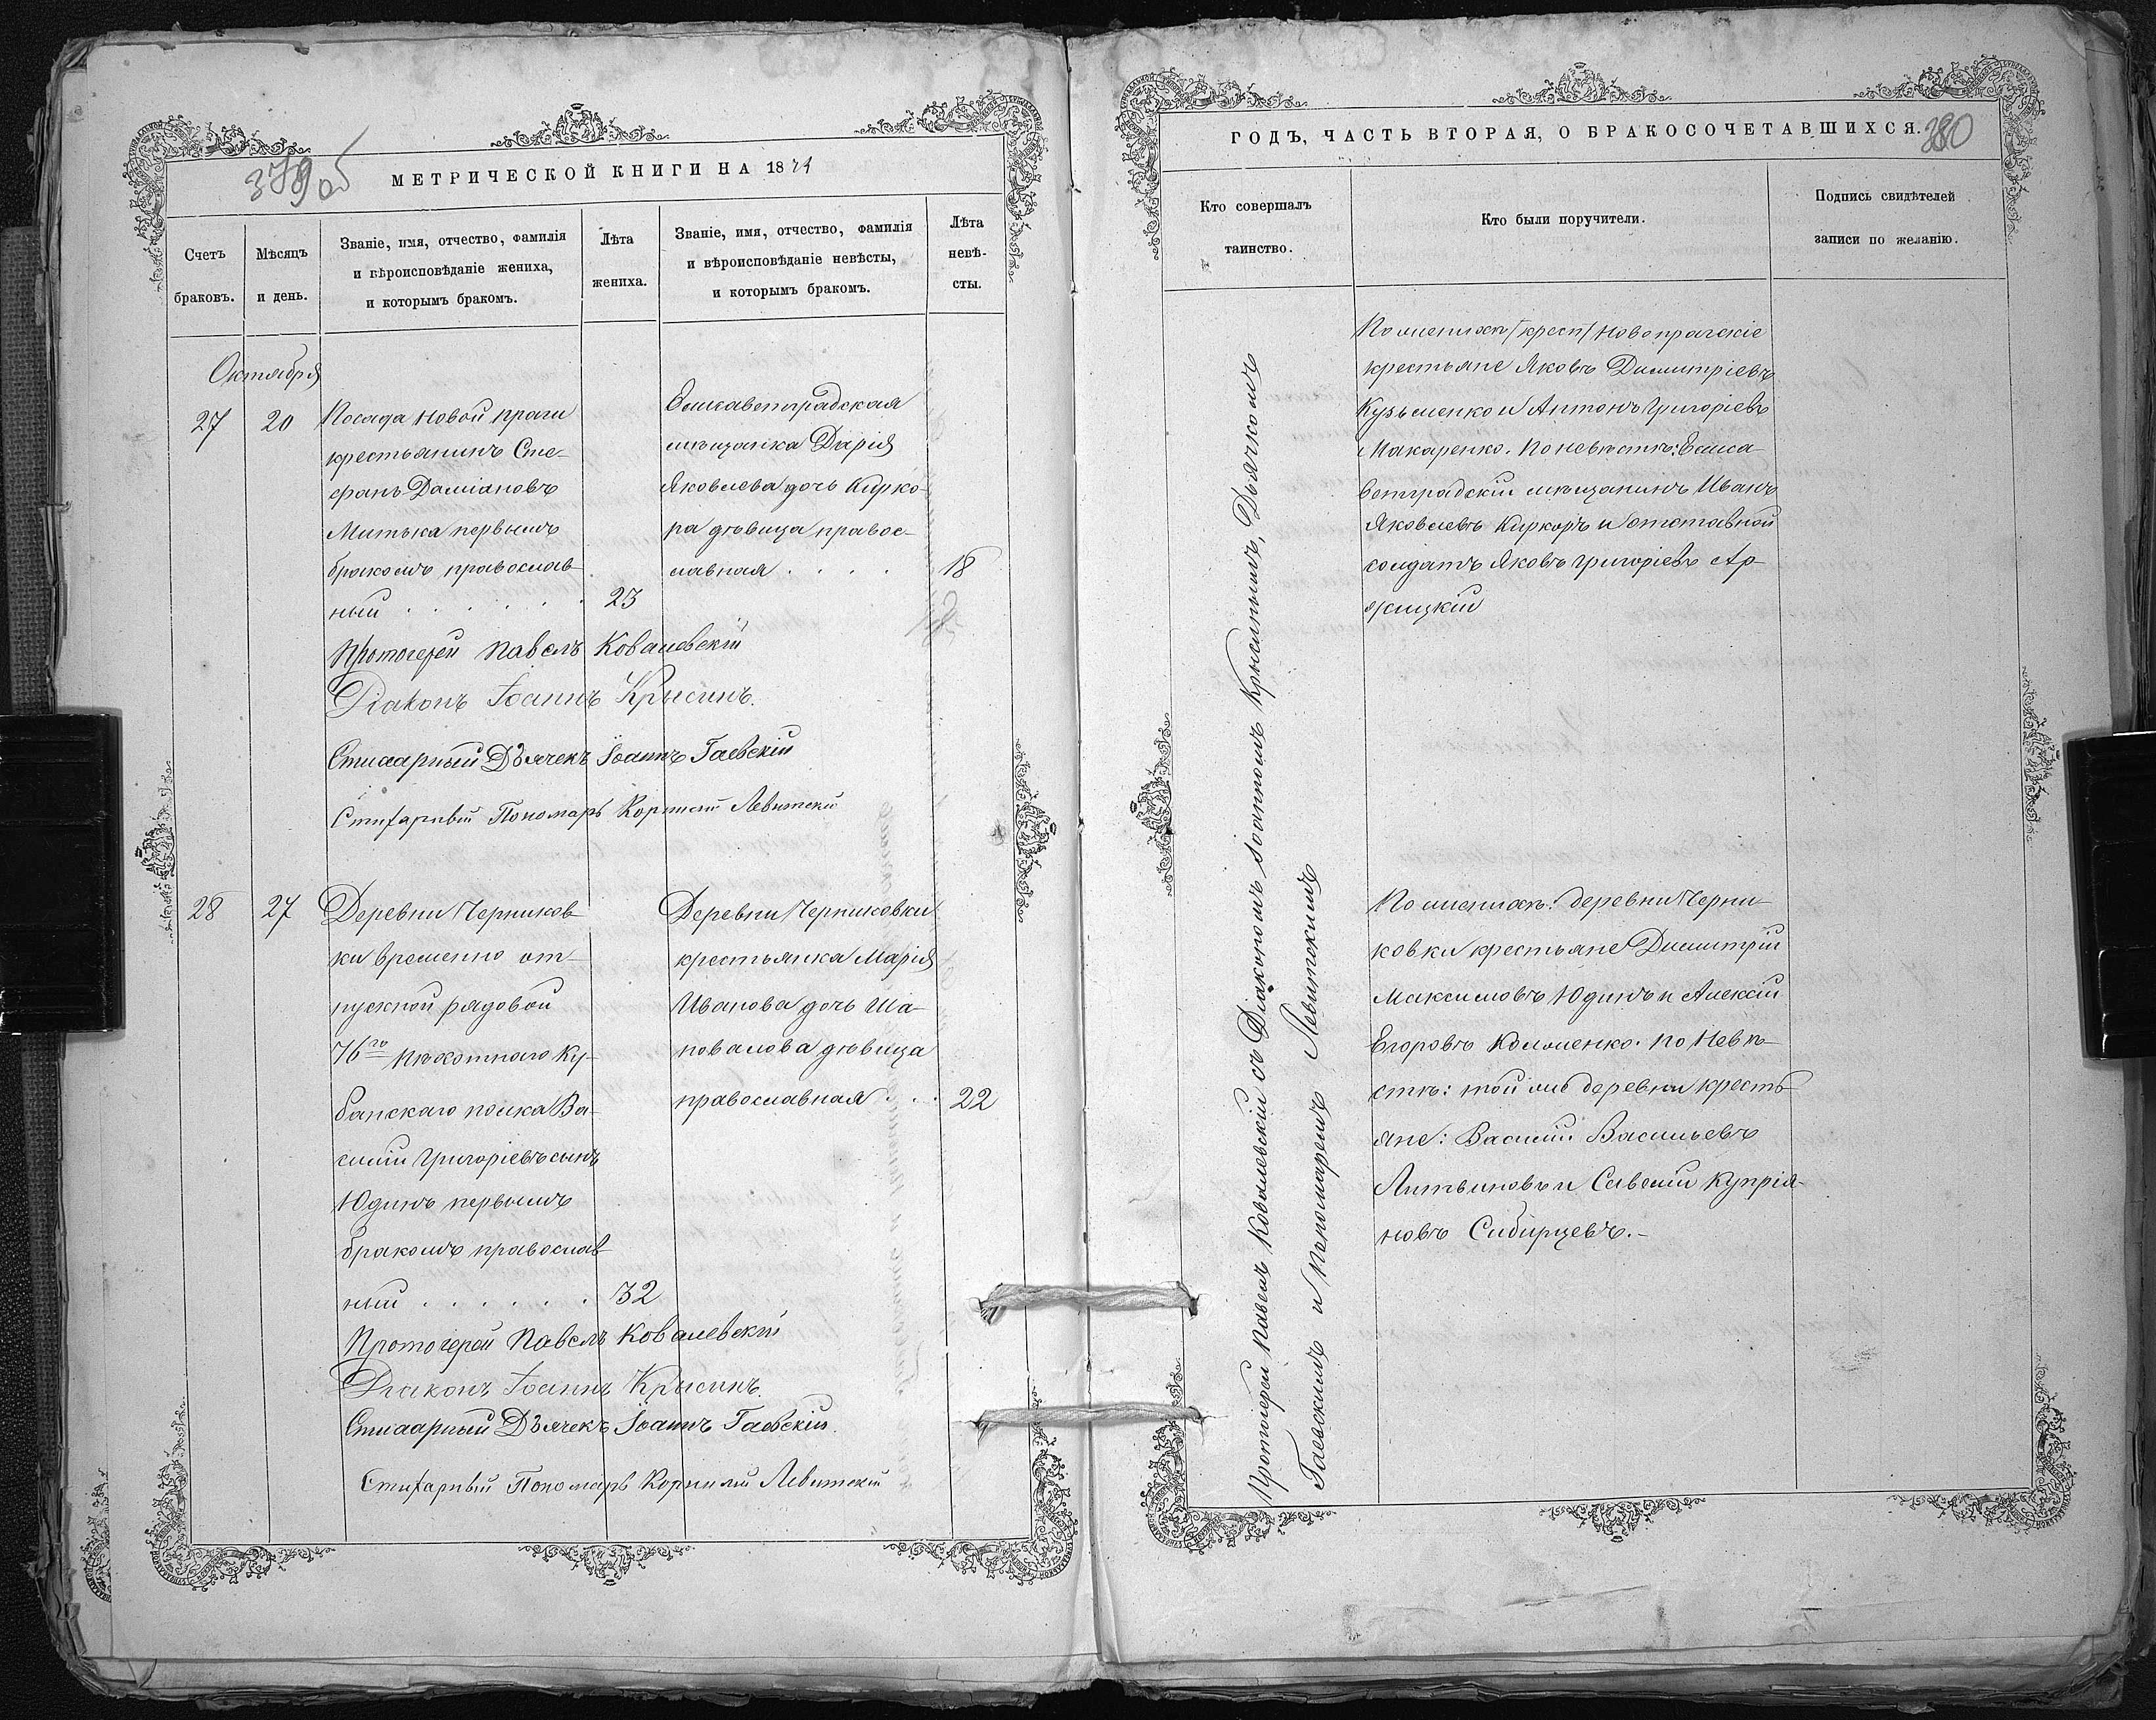 379об
МЕТРИЧЕСКОЙ КНИГИ НА 1871
Счетъ браковъ.
Мѣсяцъ и день.
Званіе, имя, отчество, фамилія
и вѣроисповѣданіе жениха,
и которымъ бракомъ.
Лѣта
жениха.
Званіе, имя, отчество, фамилія
и вѣроисповѣданіе невѣсты,
и которымъ бракомъ.
Лѣта
невѣ-
сты.
Октября
27
20
Посада Новой праги
крестьянинъ Сте-
фанъ Даміановъ
Митька первымъ
бракомъ православ
ный . . . . . .
23
Елисаветградская
мѣщанка Дарія
Яковлева дочь Кирко-
ра дѣвица правос-
лавная . . . .
18
Протоіерей Павелъ Ковалевскій
Діаконъ Іоаннъ Крысинъ.
Стихарный Дьячекъ Іоаннъ Гаевскій
Стихарный Пономарь Корнилій Левитскій
28
27
Деревни Черников
ки временно от-
пускной рядовой
76го пѣхотнаго Ку-
банскаго полка Ва-
силій Григоріевъ сынъ
Юдинъ первымъ
бракомъ православ
ный . . . . . .
32
Деревни Черниковки
крестьянка Марія
Иванова дочь Ша-
повалова дѣвица
православная . . .
22
Протоіерей Павелъ Ковалевскій
Діаконъ Іоаннъ Крысинъ.
Стихарный Дьячекъ Іоаннъ Гаевскій.
Стихарный Пономарь Корнилій Левитскій
ГОДЪ, ЧАСТЬ ВТОРАЯ, О БРАКОСОЧЕТАВШИХСЯ.
380
Кто совершалъ
таинство.
Кто были поручители.
Подпись свидѣтелей
записи по желанію.
Протоіерей Павелъ Ковалевскій съ Діакономъ Іоанномъ Крысинымъ, Дьячкомъ
Гаевскимъ и Пономаремъ Левитскимъ
По женихѣ Новопрагскіе
крестьяне Яковъ Димитріевъ
Кузьменко и Антонъ Григоріевъ
Макаренко. По невѣстѣ: Елиса-
ветградскій мѣщанинъ Иванъ
Яковлевъ Киркоръ и отставной
солдатъ Яковъ Григоріевъ
По женихѣ: деревни Черни-
ковки крестьяне Димитрій
Максимовъ Юдинъ и Алексій
Егоровъ Коломенко. По Невѣ-
стѣ: той же деревни кресть
яне: Василій Васильевъ
Литвиновъ и Савелій Купрія-
новъ Сибирцевъ.-